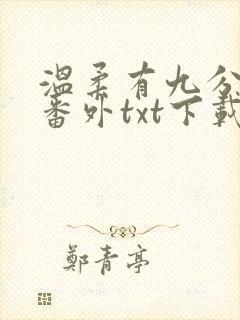 溫柔有九分
番外txt下載
鄭青亭